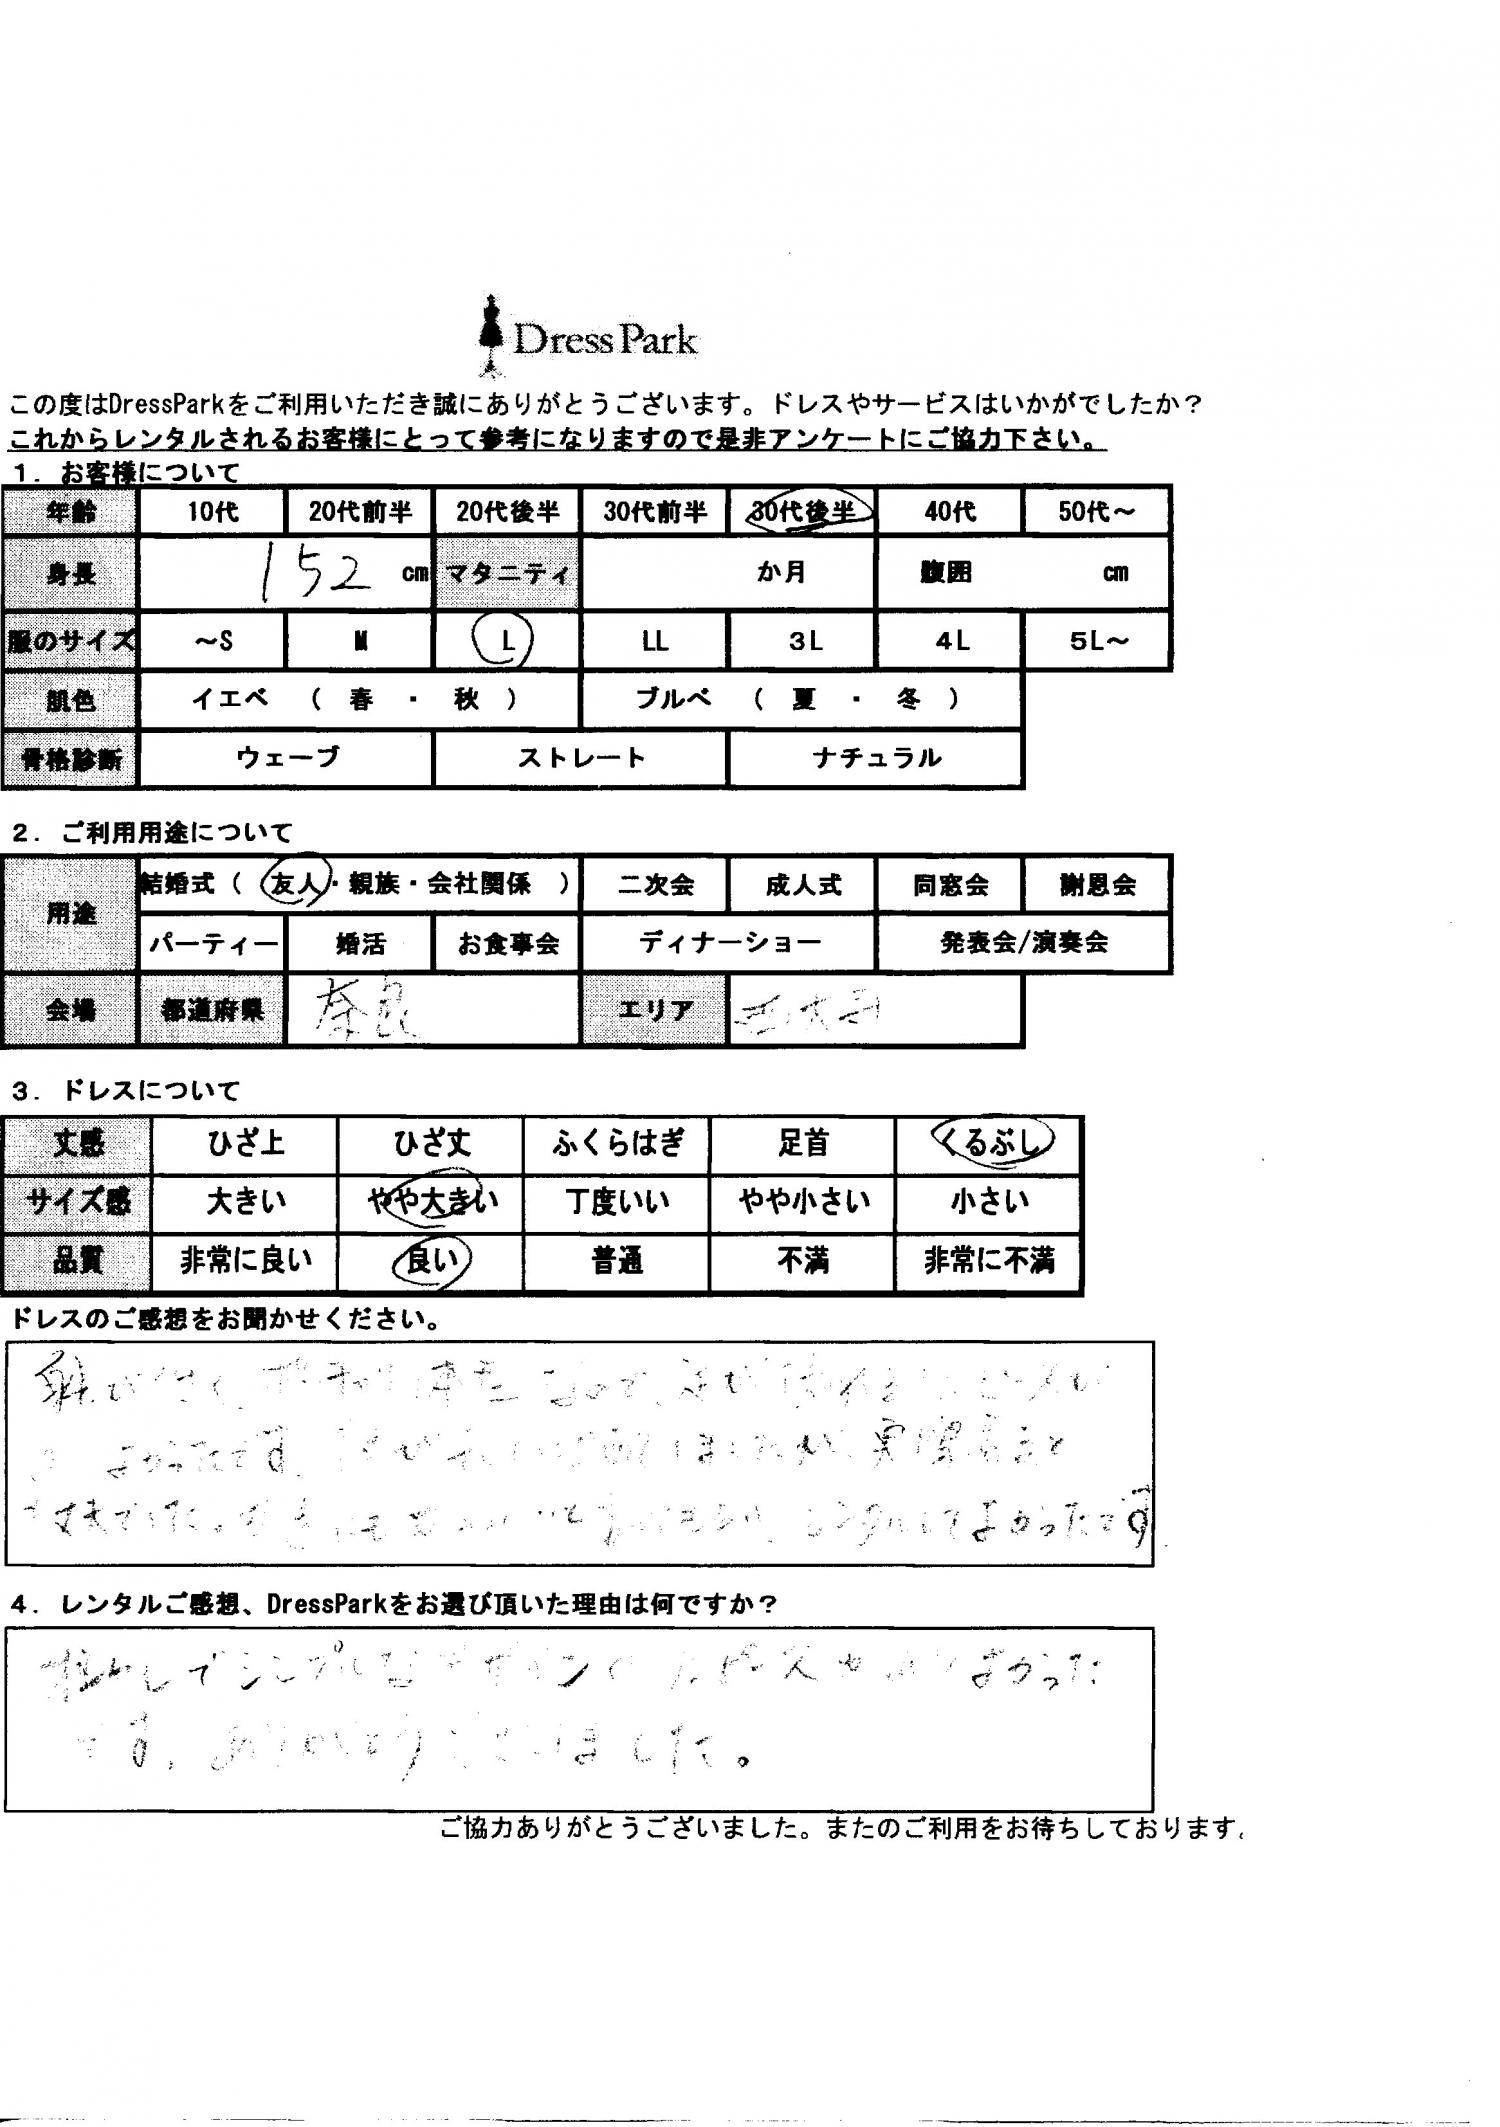 Dress Park
この度はDressParkをご利用いただき誠にありがとうございます。ドレスやサービスはいかがでしたか？
これからレンタルされるお客様にとって参考になりますので是非アンケートにご協力下さい。
１．お客様について
年齢 10代 20代前半 20代後半 30代前半 30代後半 40代 50代～
身長 152 cm マタニティ か月 腹囲 cm
服のサイズ ～S M L LL 3L 4L 5L～
肌色 イエベ （ 春 ・ 秋 ） ブルベ （ 夏 ・ 冬 ）
骨格診断 ウェーブ ストレート ナチュラル
２．ご利用用途について
用途 結婚式（ 友人・親族・会社関係 ） 二次会 成人式 同窓会 謝恩会
パーティー 婚活 お食事会 ディナーショー 発表会/演奏会
会場 都道府県 奈良 エリア 西大寺
３．ドレスについて
丈感 ひざ上 ひざ丈 ふくらはぎ 足首 くるぶし
サイズ感 大きい やや大きい 丁度いい やや小さい 小さい
品質 非常に良い 良い 普通 不満 非常に不満
ドレスのご感想をお聞かせください。
なので、
よかったです 実際着ると
レンタルしてよかったです
４．レンタルご感想、DressParkをお選び頂いた理由は何ですか？
シンプルなデザイン よかった
です。ありがとうございました。
ご協力ありがとうございました。またのご利用をお待ちしております。